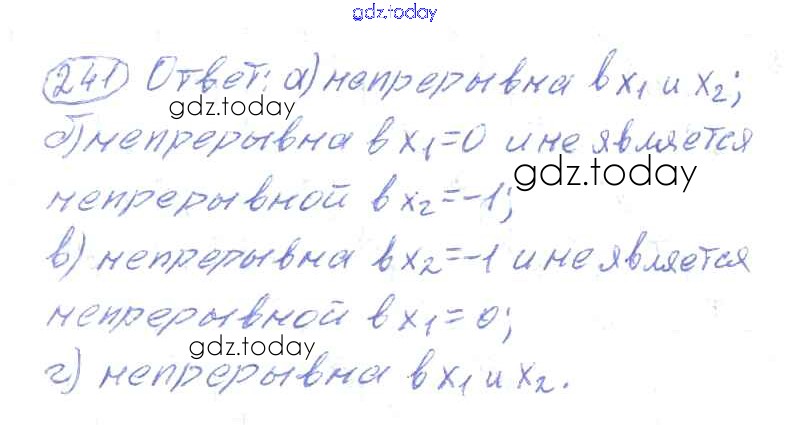 gdz.today
241 Ответ: а) непрерывна в x₁ и x₂;
gdz.today
б) непрерывна в x₁=0 и не является
gdz.today
непрерывной в x₂=-1;
в) непрерывна в x₂=-1 и не является
непрерывной в x₁=0;
gdz.today
г) непрерывна в x₁ и x₂.